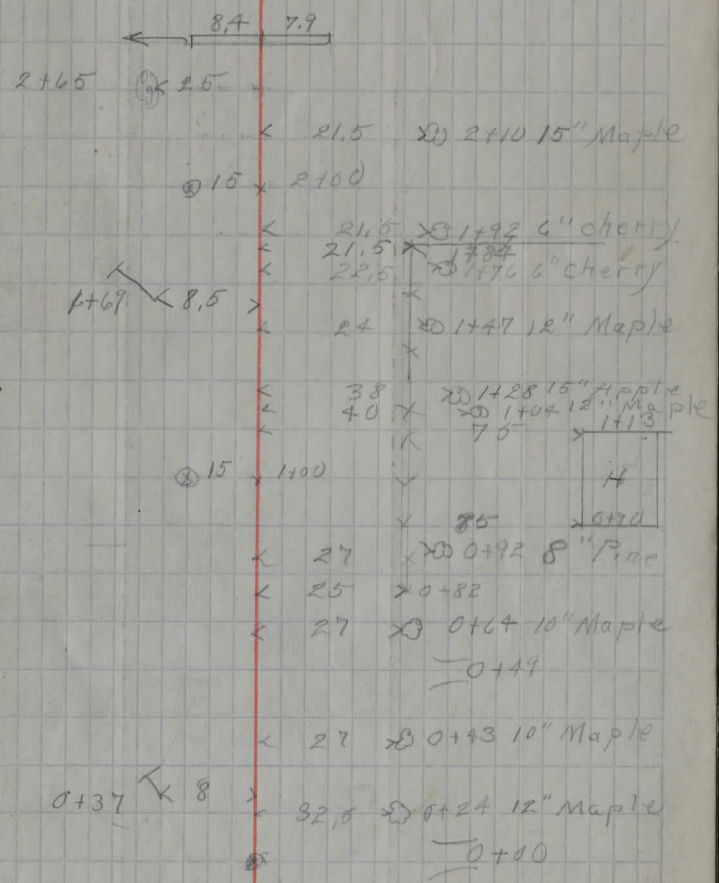 8,4 7.9
2+65 25
21.5 2+10 15" Maple
15 2+00
21.5 1+92 6" Cherry
21.5 1+84
22,5 1+76 6" Cherry
1+69 8,5
24 1+47 12" Maple
38 1+28 15" Apple
40 1+04 12" Maple
75 1+13
15 1+00
H
85 0+70
27 0+92 8" Pine
25 0+82
27 0+64 10" Maple
0+49
27 0+43 10" Maple
0+37 8
32,5 0+24 12" Maple
0+00